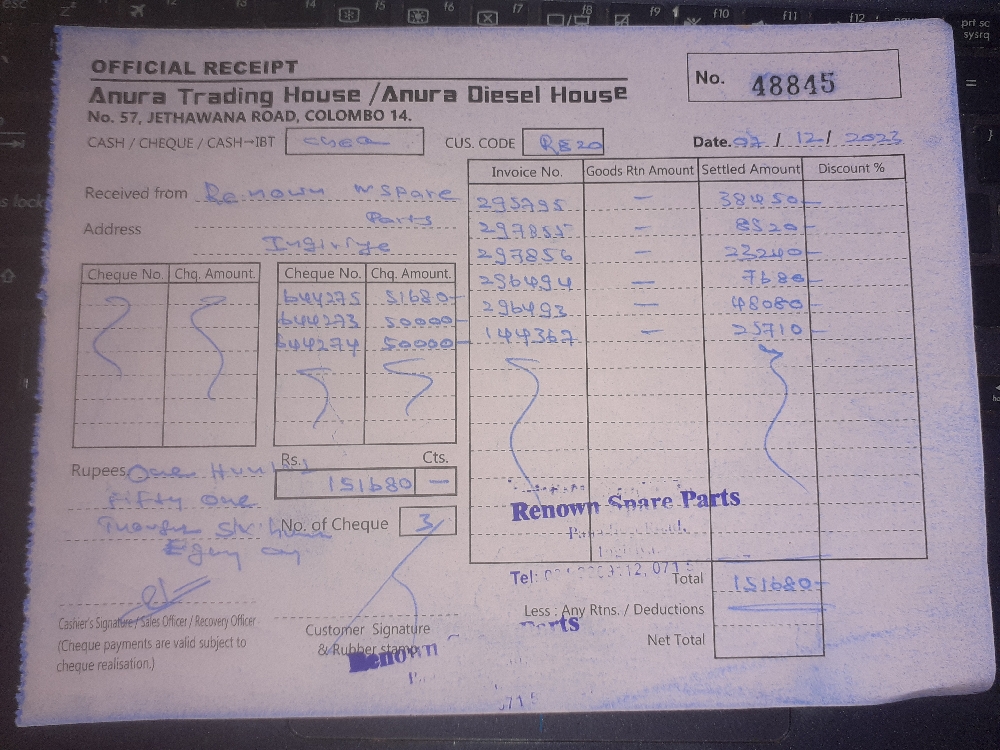 OFFICIAL RECEIPT
No. 48845
Anura Trading House / Anura Diesel House
No. 57, JETHAWANA ROAD, COLOMBO 14.
CASH / CHEQUE / CASH→IBT
CUS. CODE RE20
Date. 07 / 12 / 2023
Received from Renown Spare
Parts
Address
Ingiriya
Cheque No. Chq. Amount.
Cheque No. Chq. Amount.
644275 51680-
644273 50000-
644274 50000-
Invoice No. Goods Rtn Amount Settled Amount Discount %
295795 — 38450-
297855 — 8520-
297856 — 23240-
296494 — 7680-
296493 — 48080-
144367 — 25710-
Rupees One Hundred
Fifty One
Rs. Cts.
151680 —
No. of Cheque 3/
Cashier's Signature / Sales Officer / Recovery Officer
(Cheque payments are valid subject to
cheque realisation.)
Customer Signature
& Rubber stamp
Renown
Renown Spare Parts
Tel:
Total 151680-
Less : Any Rtns. / Deductions
Parts
Net Total
f5 f6 f7 f8 f9 f10 f11 f12
prt sc
sysrq